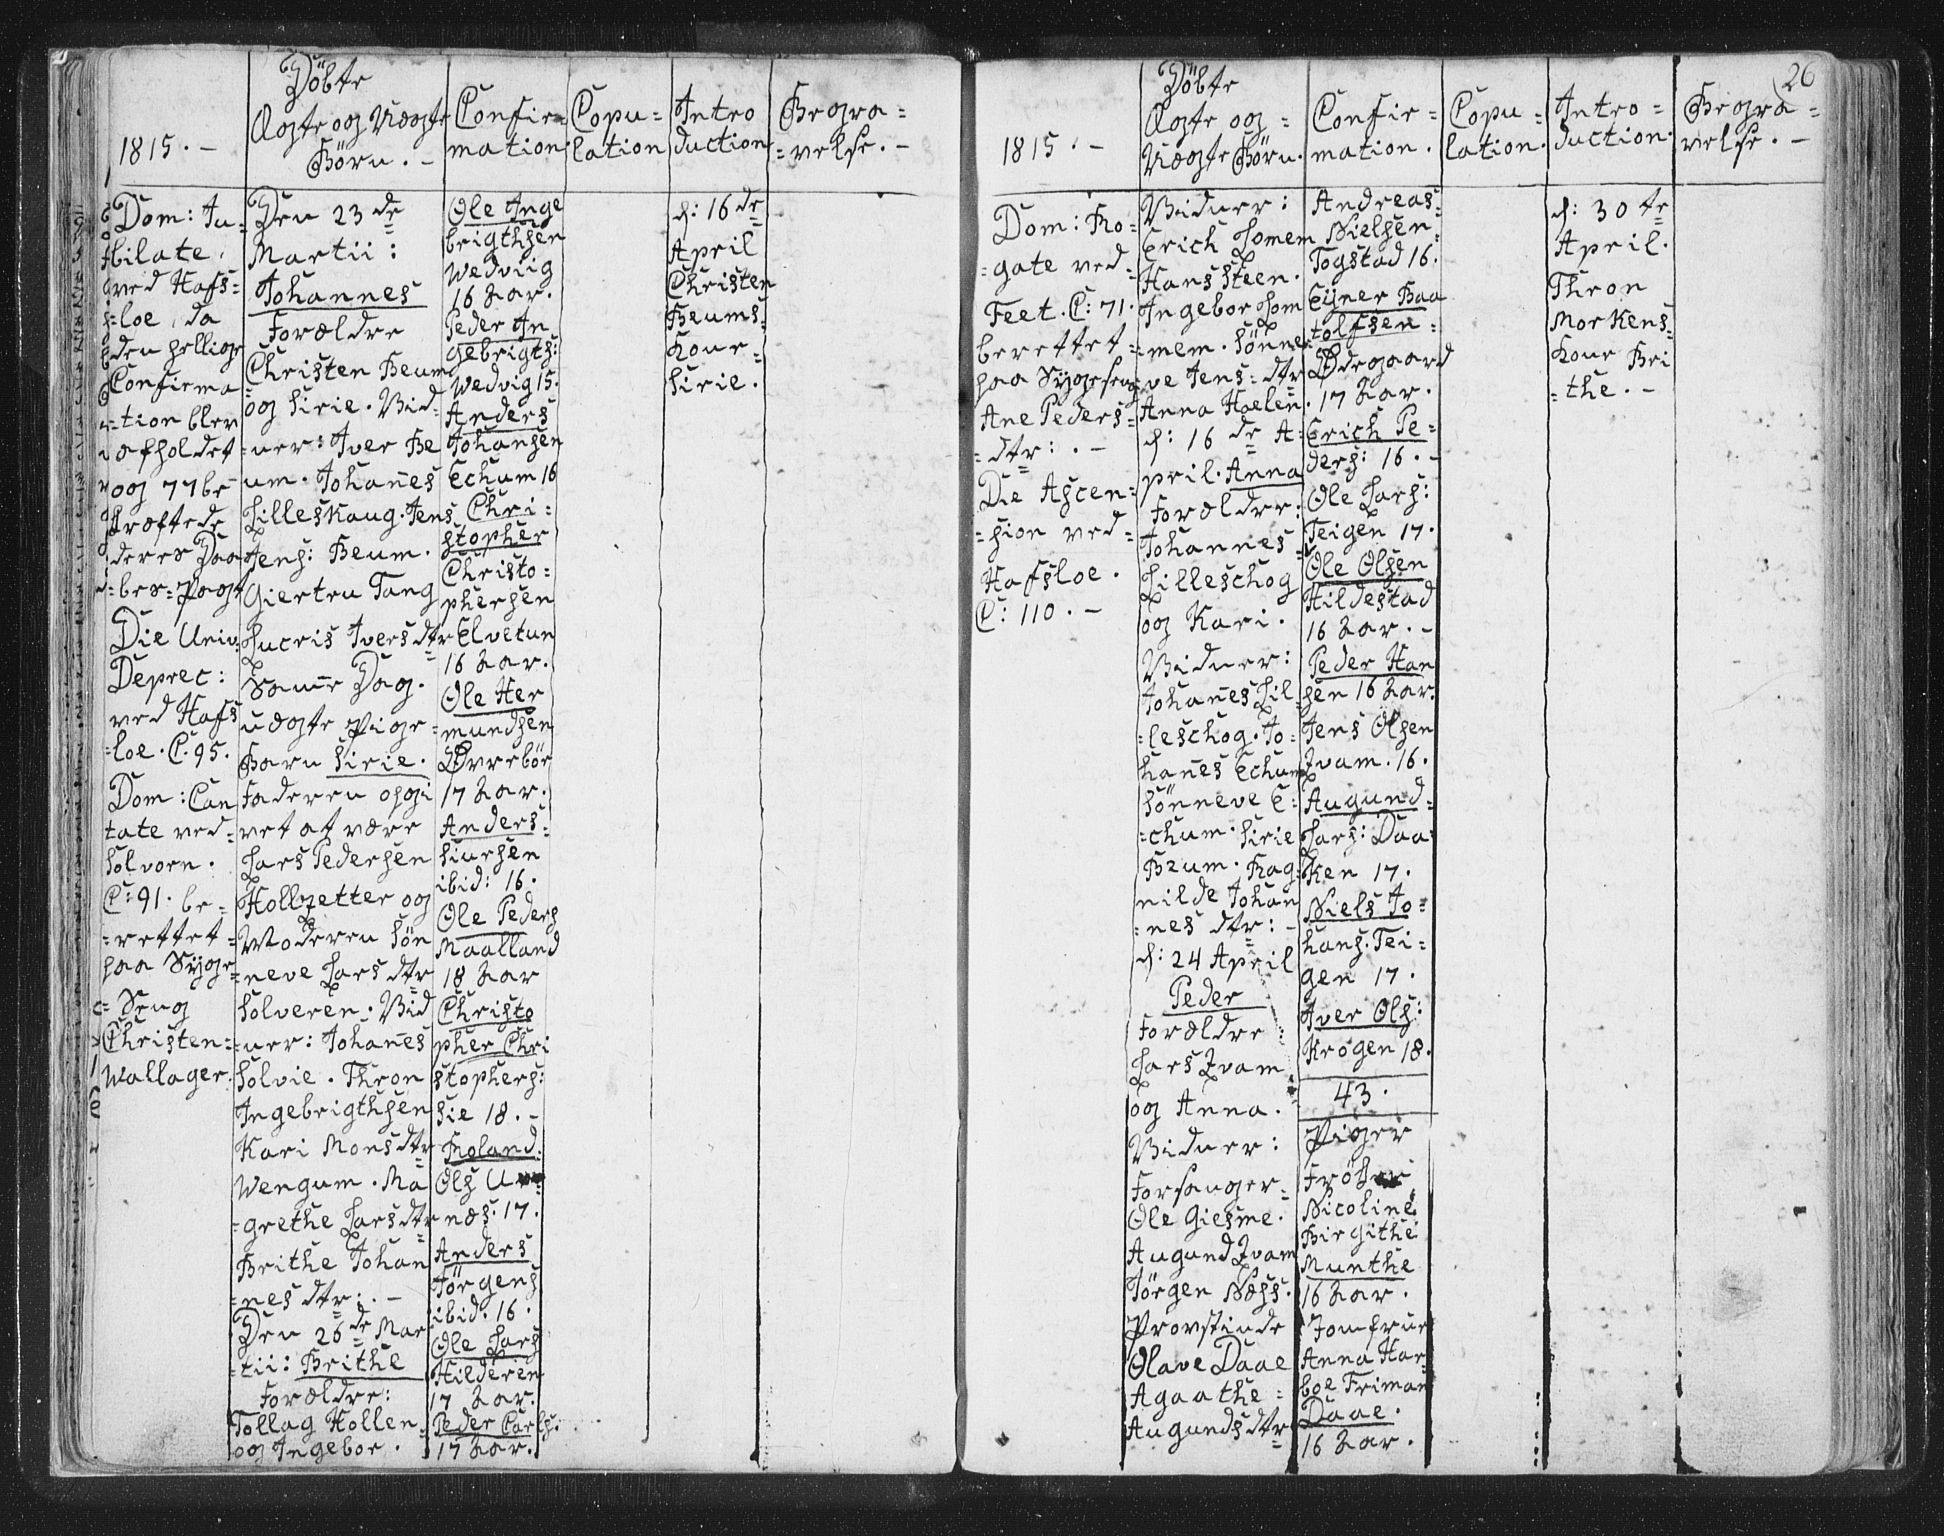 1815. -
Dom: Ju-
bilate,
ved Hafs=
=loe, da
den hellige
Confirma
=tion blev
afholdet
og 77 be
kræftede
deres Daa
=bes=Pagt
Die Univ:
Deprec:
ved Hafs
=loe. C. 95.
Dom: Can
tate ved=
Solvorn.
C: 91. be=
=rettet=
paa Syge
= Seng
Christen=
Wallager.
Döbte
Ægte og Uægte
Börn. -
Den 23 de
Martii:
Johannes
Forældre
Christen Beum
og Sirie. Vid=
=ner: Iver Be
um. Johañes
Lilleskaug. Jens
Jens: Beum.
Giertru Tang
Lucris Ivers dtr
Samme Dag.
uægte Pige=
Barn Sirie.
Faderen opgi
vet at være
Lars Pedersen
Hollzetter og
Moderen Sön
=neve Lars dtr
Solveren. Vid
=ner: Johañes
Solvie. Thron
Ingebrigthsen
Kari Monsdtr
Wengum. Ma
=grethe Larsdtr
Brithe Johan
=nes dtr: . -
Den 26 de Mar
=tii: Brithe
Forældre:
Tollag Hollen=
og Ingebor.
Confir=
mation.
Ole Inge
brigthsen
Wedviig
16 Aar.
Peder In
gebrigts:
Wedvig 15.
Anders
Johansen
Echum 16
Chri=
stopher
Christo=
phersen
Elvetun
16 Aar.
Ole Her
=mundsen
Øvrebör
17 Aar.
Anders=
Siursen
ibid: 16.
Ole Peders
Maalland
18 Aar
Christo
pher Chri
stophers:
Sie 18. -
Roland.
Ols
næs. 17.
Anders
Jörgens
ibid: 16.
Ole Lars
Hilderen
17 Aar.
Peder Carls:
17 Aar.
Copu=
lation
Intro
duction
d: 16 de
April
Christen
Beums=
Kone=
Sirie.
Begra=
=velse. -
26
1815. -
Dom: Ro=
=gate ved=
Feet. C: 71.
berettet=
paa Sygeseng
Ane Peders=
=dtr: . -
Die Ascen=
=sion ved=
Hafsloe.
C: 110. -
Döbte
Ægte og=
Uægte Börn.
Vidner:
Erich Lomem
Hans Steen.
Ingebor Lom
=mem. Sönne
ve Jens=dtr
Anna Hoelen.
d: 16 de A=
pril. Anna
Forældre:
Johannes=
Lilleschog
og Kari.
Vidner:
Johañes Lil
=leschog. Jo=
hañes Echum
Sönneve E=
=chum. Sirie
Beum. Rag=
nilde Johan
=nes dtr: -
d: 24 April
Peder
Forældre:
Lars Kvam
og Anna.
Vidner:
Forsanger=
Ole Giesme.
Augund Kvam
Jörgen Næss.
Provstinde
Olave Daae
Agaathe=
Augundsdtr
Confir=
mation.
Andreas=
Nielsen=
Togstad 16.
Ejner Baa
tolfsen=
Ødegaard
17 Aar.
Erich Pe=
ders: 16. -
Ole Lars:
Teigen 17.
Ole Olsen
Hildestad
16 Aar. -
Peder Han
sen 16 Aar.
Jens Olsen
Kvam. 16.
Augund=
Lars: Daa=
ken 17.
Niels Jo=
hans. Tei=
gen 17.
Iver Ols:
Krogen 18.
43.
Piger
Nicoline
Birgithe
Munthe
16 Aar.
Jomfrue
Anna Har=
boe Friman
Daae.
16 Aar.
Copu=
lation.
Intro=
duction.
d: 30 te
April.
Thron
Morkens=
Kone Bri
=the. -
Begra=
velse. -